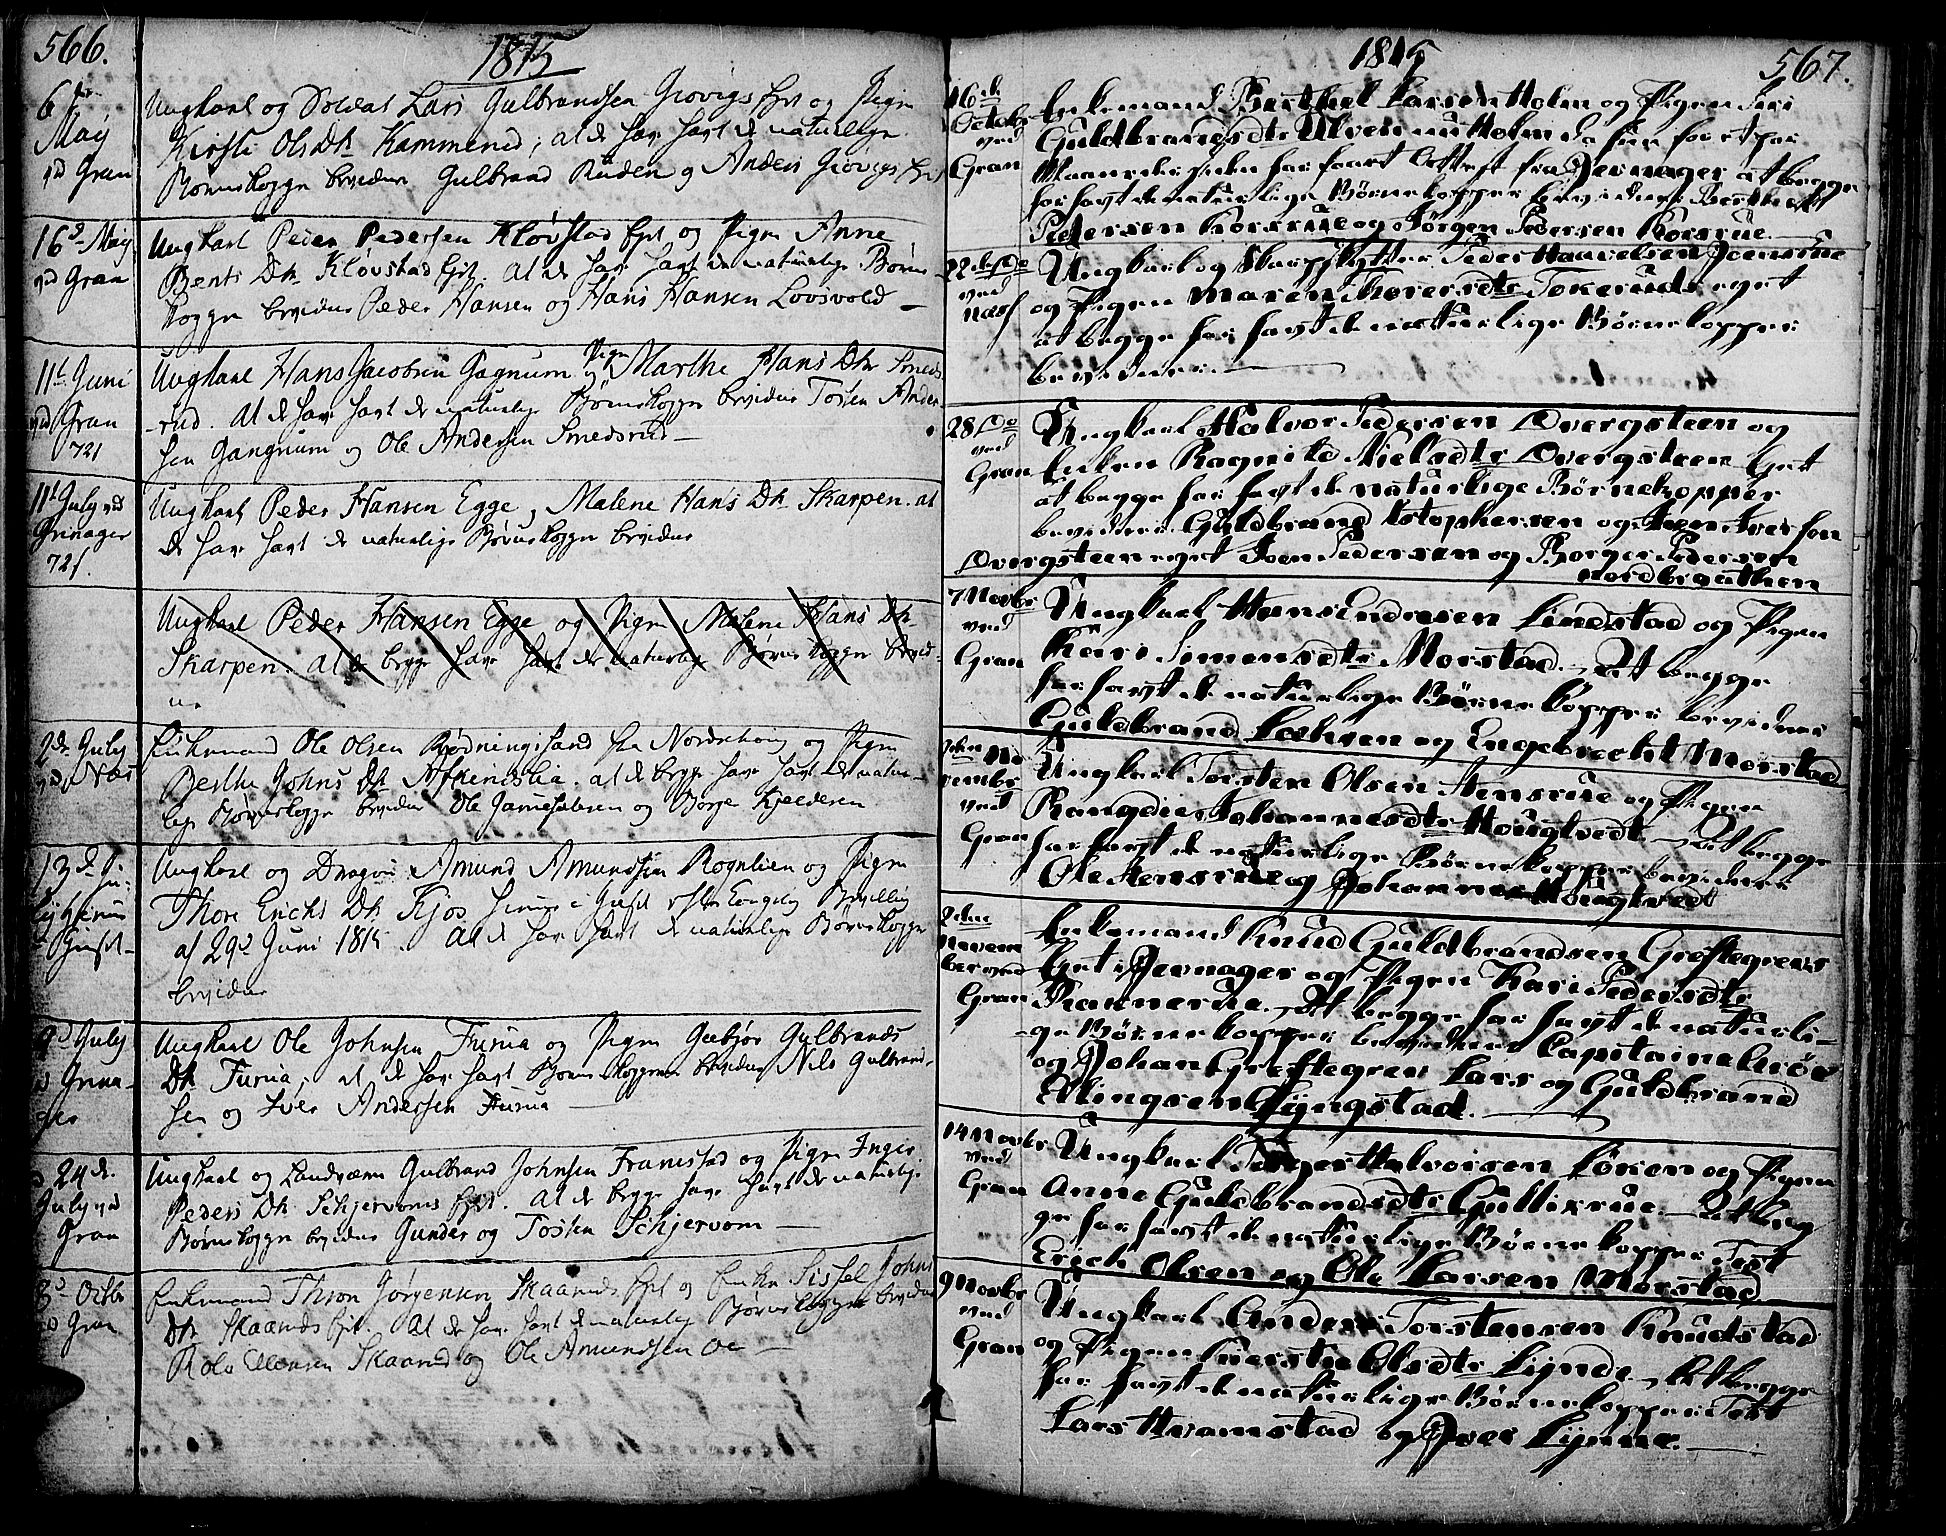 566.
1815
6te
Maÿ
ved Gran
Ungkarl og Soldat Lars Gulbrandsen Giøvigs Ejet og Pigen
Kirsti Ols Dtr Kammened; at de have havt de naturlige
Børnekopper bevidner Gulbrand Ruden og Anders Giøvigs Ejet
16d Maÿ
ved Gran
Ungkarl Peder Pedersen Kløvstad Ejet og Pigen Anne
Bents Dtr Kløvstad Ejet. at de have havt de naturlige Børne-
kopper bevidner Peder Hansen og Hans Hansen Lovsvold —
11t Juni
ved Gran
721
Ungkarl Hans Jacobsen Gagnum og Pigen Marthe Hans Dtr Smeds-
-rud. At de have havt de naturlige Børnekopper bevidner Tosten Ander-
sen Gangnum og Ole Andersen Smedsrud —
11t July ved
Grinager
721.
Ungkarl Peder Hansen Egge, Malene Hans Dtr Skarpen. at
de have havt de naturlige Børnekopper bevidner
Ungkarl Peder Hansen Egge og Pigen Malene Hans Dtr
Skarpen. at de begge have havt de naturlige Børnekopper bevid-
ner
2de July
ved Næs
Enkemand Ole Olsen Rødningsand fra Nordrehoug og Pigen
Berthe Johns Dtr. at de begge have havt de natur-
lige Børnekopper bevidner Ole og Børge Kjeldsen
13de Ju-
Ungkarl og Dragon Amund Amundsen Rognlien og Pigen
Thore Erichs Dtr Kjos hver i Huset efter Kongelig Bevilling
af 29d Juni 1815. At de have havt de naturlige Børnekopper
bevidner
July
Grina-
ger
Ungkarl Ole Johnsen Furua og Pigen Gubjør Gulbrands
Dtr Furua, at de have havt Børnekopperne bevidner Nils Gulbrand-
sen og Iver Andersen Furua —
24de
July ved
Gran
Ungkarl og Landværn Gulbrand Johnsen Framstad og Pigen Inger
Peders Dtr Schjervoms Ejet. At de begge have havt de naturlige
Børnekopper bevidner Gunder og Tosten Schjervom —
8d Octbr
ved Gran
Enkemand Thron Jørgensen Skaands Ejet og Enke Sissel Johns
Dtr Skaands Ejet. At de have havt de naturlige Børnekopper bevidner
Rolv Ellensen Skaand og Ole Amundsen —
1815
567.
16de
Octobr
ved
Gran
Enkemand Berthel Larsen Holm og Pigen Siri
Guldbrandsdtr Ulven nu Holm da hun for et par
Maaneder siden har faaet Attest fra Jevnager at begge
har havt de naturlige Børnekopper bevidner Berthel
Pedersen Korsrue og Jørgen Pedersen Korsrue.
22de Do
ved
Næss
Ungkarl og Skarpskytter Peder Haavelsen Joensrue
og Pigen Maren Thoresdtr Tokeruds eyet
at begge har havt de naturlige Børnekopper
bevidner: —
28 Do
ved
Gran
Ungkarl Halvor Pedersen Dvergsteen og
Enken Ragnild Nielsdtr Dvergsteen Eyet
at begge har havt de naturlige Børnekopper
bevidner: Guldbrand Istophersen og Steen Iversen
Dvergsteen eyet Iven Pedersen og Borger Pedersen
Nordbrguthen
7 Novbr
ved
Gran
Ungkarl Hans Endresen Lindstad og Pigen
Kari Simensdtr Morstad. At begge
har havt de naturlige Børnekopper bevidner
Guldbrand Larsen og Engebrecht Morstad
No-
vembr
ved
Gran
Ungkarl Torsten Olsen Stensrue og Pigen
Rangdie Johannesdtr Hougtvedt. At begge
har havt de naturlige Børnekopper bevidner
Ole Stensrue og Johannes Hougtvedt
Novem-
ber ved
Gran
Enkemand Knud Guldbrandsen Greftegrens
Eyet i Jevnager og Pigen Kari Pedersdtr
Rannerue. At begge har havt de naturli-
ge Børnekopper bevidner Capitaine Krøe
og Johan Greftegren Lars og Guldbrand
Elingsen Lÿngstad. —
14 Novbr
ved
Gran
Ungkarl Torger Halvorsen Løken og Pigen
Anne Guldbrandsdtr Gullixrue. At beg-
ge har havt de naturlige Børnekopper Test
Erich Olsen og Ole Larsen Morstad
9 Novbr
ved
Gran
Ungkarl Anders Torstensen Knudstad
og Pigen Kiersti Olsdtr Lÿnde. At begge
har havt de naturlige Børnekopper Test
Lars Hvamstad og Iver Lÿnne. —